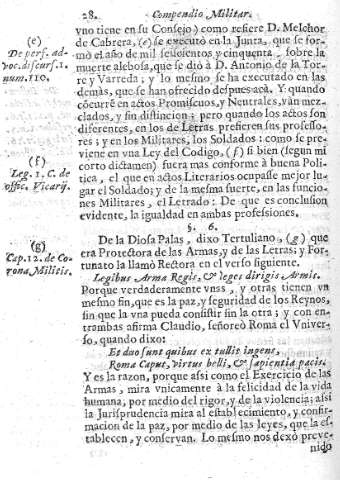 28. Compendio Militar.
vno tiene en su Consejo) como refiere D. Melchor
de Cabrera, (e) se executò en la Junta, que se for-
mò el año de mil seiscientos y cinquenta, sobre la
muerte alebosa, que se diò à D. Antonio de la Tor-
re y Varreda; y lo mesmo se ha executado en las
demàs, que se han ofrecido despues acà. Y quando
cõcurrẽ en actos Promiscuos, y Neutrales, vàn mez-
clados, y sin distincion; pero quando los actos son
diferentes, en los de Letras prefieren sus professo-
res; y en los Militares, los Soldados: como se pre-
viene en vna Ley del Codigo, (f) si bien (segun mi
corto dictamen) fuera mas conforme à buena Poli-
tica, el que en actos Literarios ocupasse mejor lu-
gar el Soldado; y de la mesma suerte, en las funcio-
nes Militares, el Letrado: De que es conclusion
evidente, la igualdad en ambas profesiones.
§. 6.
De la Diosa Palas, dixo Tertuliano, (g) que
era Protectora de las Armas, y de las Letras; y For-
tunato la llamò Rectora en el verso siguiente.
Legibus Arma Regis, & leges dirigis Armis.
Porque verdaderamente vnas, y otras tienen vn
mesmo fin, que es la paz, y seguridad de los Reynos,
sin que la vna pueda consistir sin la otra; y con en-
trambas afirma Claudio, señoreò Roma el Vniver-
so, quando dixo:
Et duo sunt quibus ex tullit ingens,
Roma Caput, virtus belli, & sapientia pacis.
Y es la razon, porque assi como el Exercicio de las
Armas, mira vnicamente à la felicidad de la vida
humana, por medio del rigor, y de la violencia; assi
la Jurisprudencia mira al establecimiento, y confir-
macion de la paz, por medio de las leyes, que la es-
tablecen, y conservan. Lo mesmo nos dexò preve-
nido
(e)
De pers. ad-
voc. discurs. 1.
num. 110.
(f)
Leg. 1. C. de
offic. Vicarij.
(g)
Cap. 12. de Co-
rona Militis.